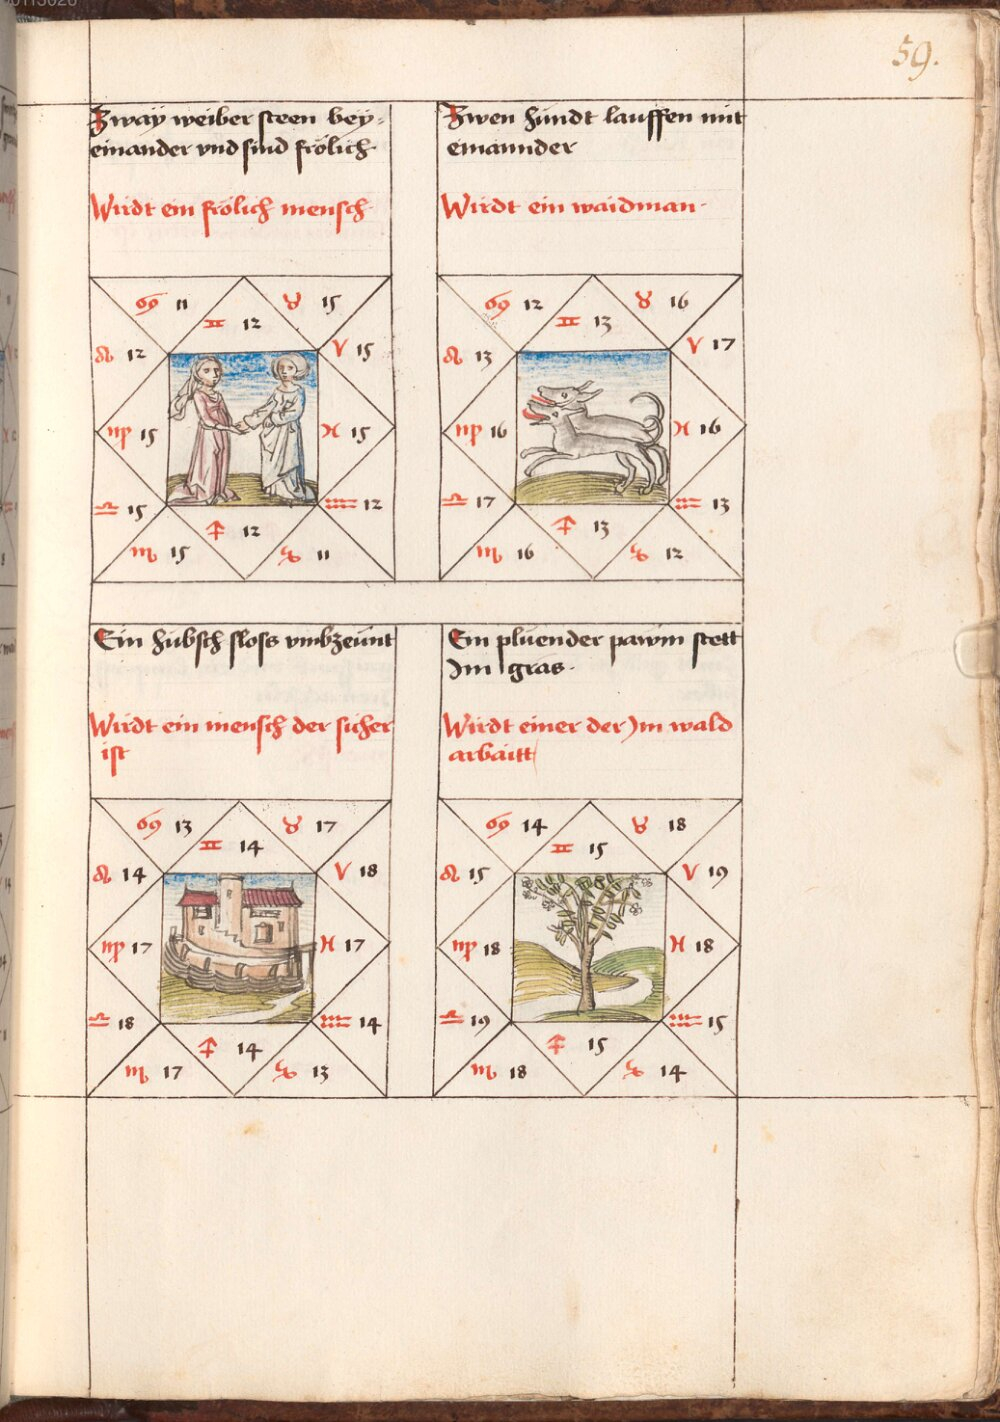 59.
Zway weiber steen bey-
einander vnd sind frölich
Wirdt ein frölich mensch
♋ 11
♉ 15
♊ 12
♌ 12
♈ 15
♍ 15
♓ 15
♎ 15
♒ 12
♐ 12
♏ 15
♑ 11
Zwen hundt lauffen mit
einannder
Wirdt ein waidman
♋ 12
♉ 16
♊ 13
♌ 13
♈ 17
♍ 16
♓ 16
♎ 17
♒ 13
♐ 13
♏ 16
♑ 12
Ein hübsch sloss vmbzeünt
Wirdt ein mensch der sicher
ist
♋ 13
♉ 17
♊ 14
♌ 14
♈ 18
♍ 17
♓ 17
♎ 18
♒ 14
♐ 14
♏ 17
♑ 13
Ein plüender pawm stett
Im gras
Wirdt einer der Im wald
arbaitt
♋ 14
♉ 18
♊ 15
♌ 15
♈ 19
♍ 18
♓ 18
♎ 19
♒ 15
♐ 15
♏ 18
♑ 14